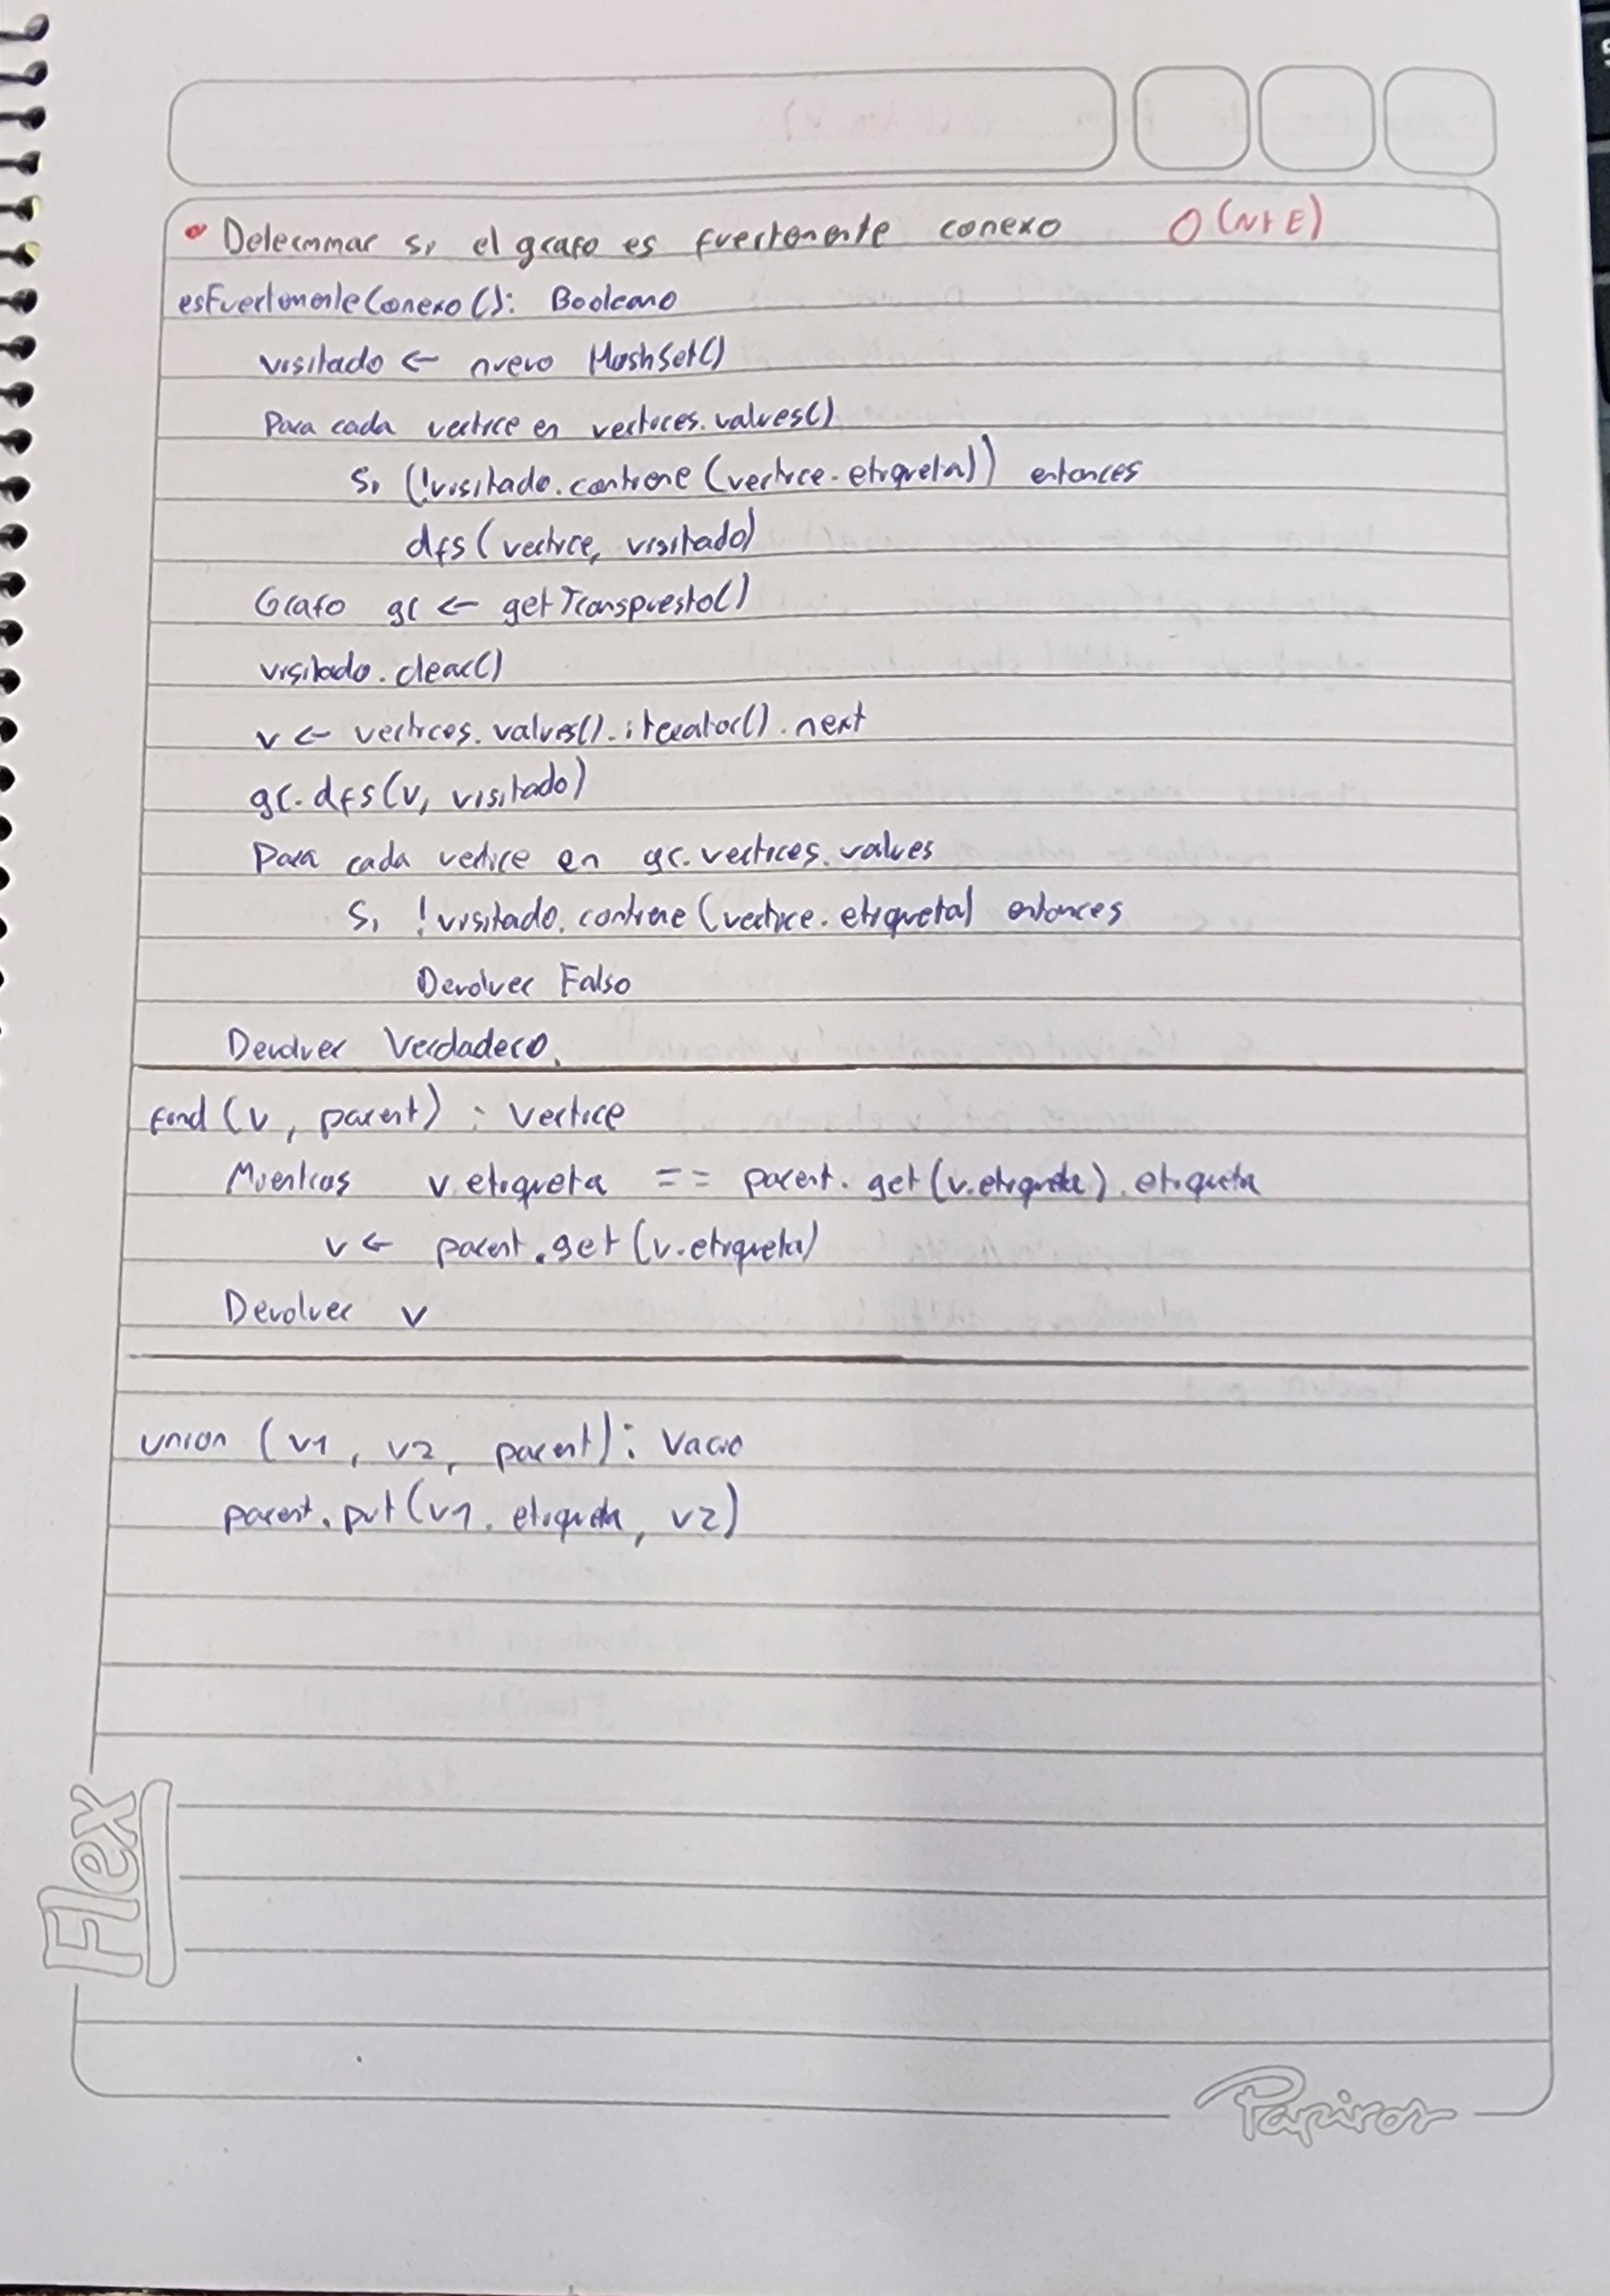 • Determinar si el grafo es fuertemente conexo O(N+E)
esFuertementeConexo(): Booleano
visitado ← nuevo HashSet()
Para cada vertice en vertices.values()
Si (!visitado.contiene(vertice.etiqueta)) entonces
dfs(vertice, visitado)
Grafo gr ← getTranspuesto()
visitado.clear()
v ← vertices.values().iterator().next
gr.dfs(v, visitado)
Para cada vertice en gr.vertices.values
Si !visitado.contiene(vertice.etiqueta) entonces
Devolver Falso
Devolver Verdadero.
find(v, parent): Vertice
Mientras v.etiqueta == parent.get(v.etiqueta).etiqueta
v ← parent.get(v.etiqueta)
Devolver v
union (v1, v2, parent): Vacio
parent.put(v1.etiqueta, v2)
Flex
Papiros